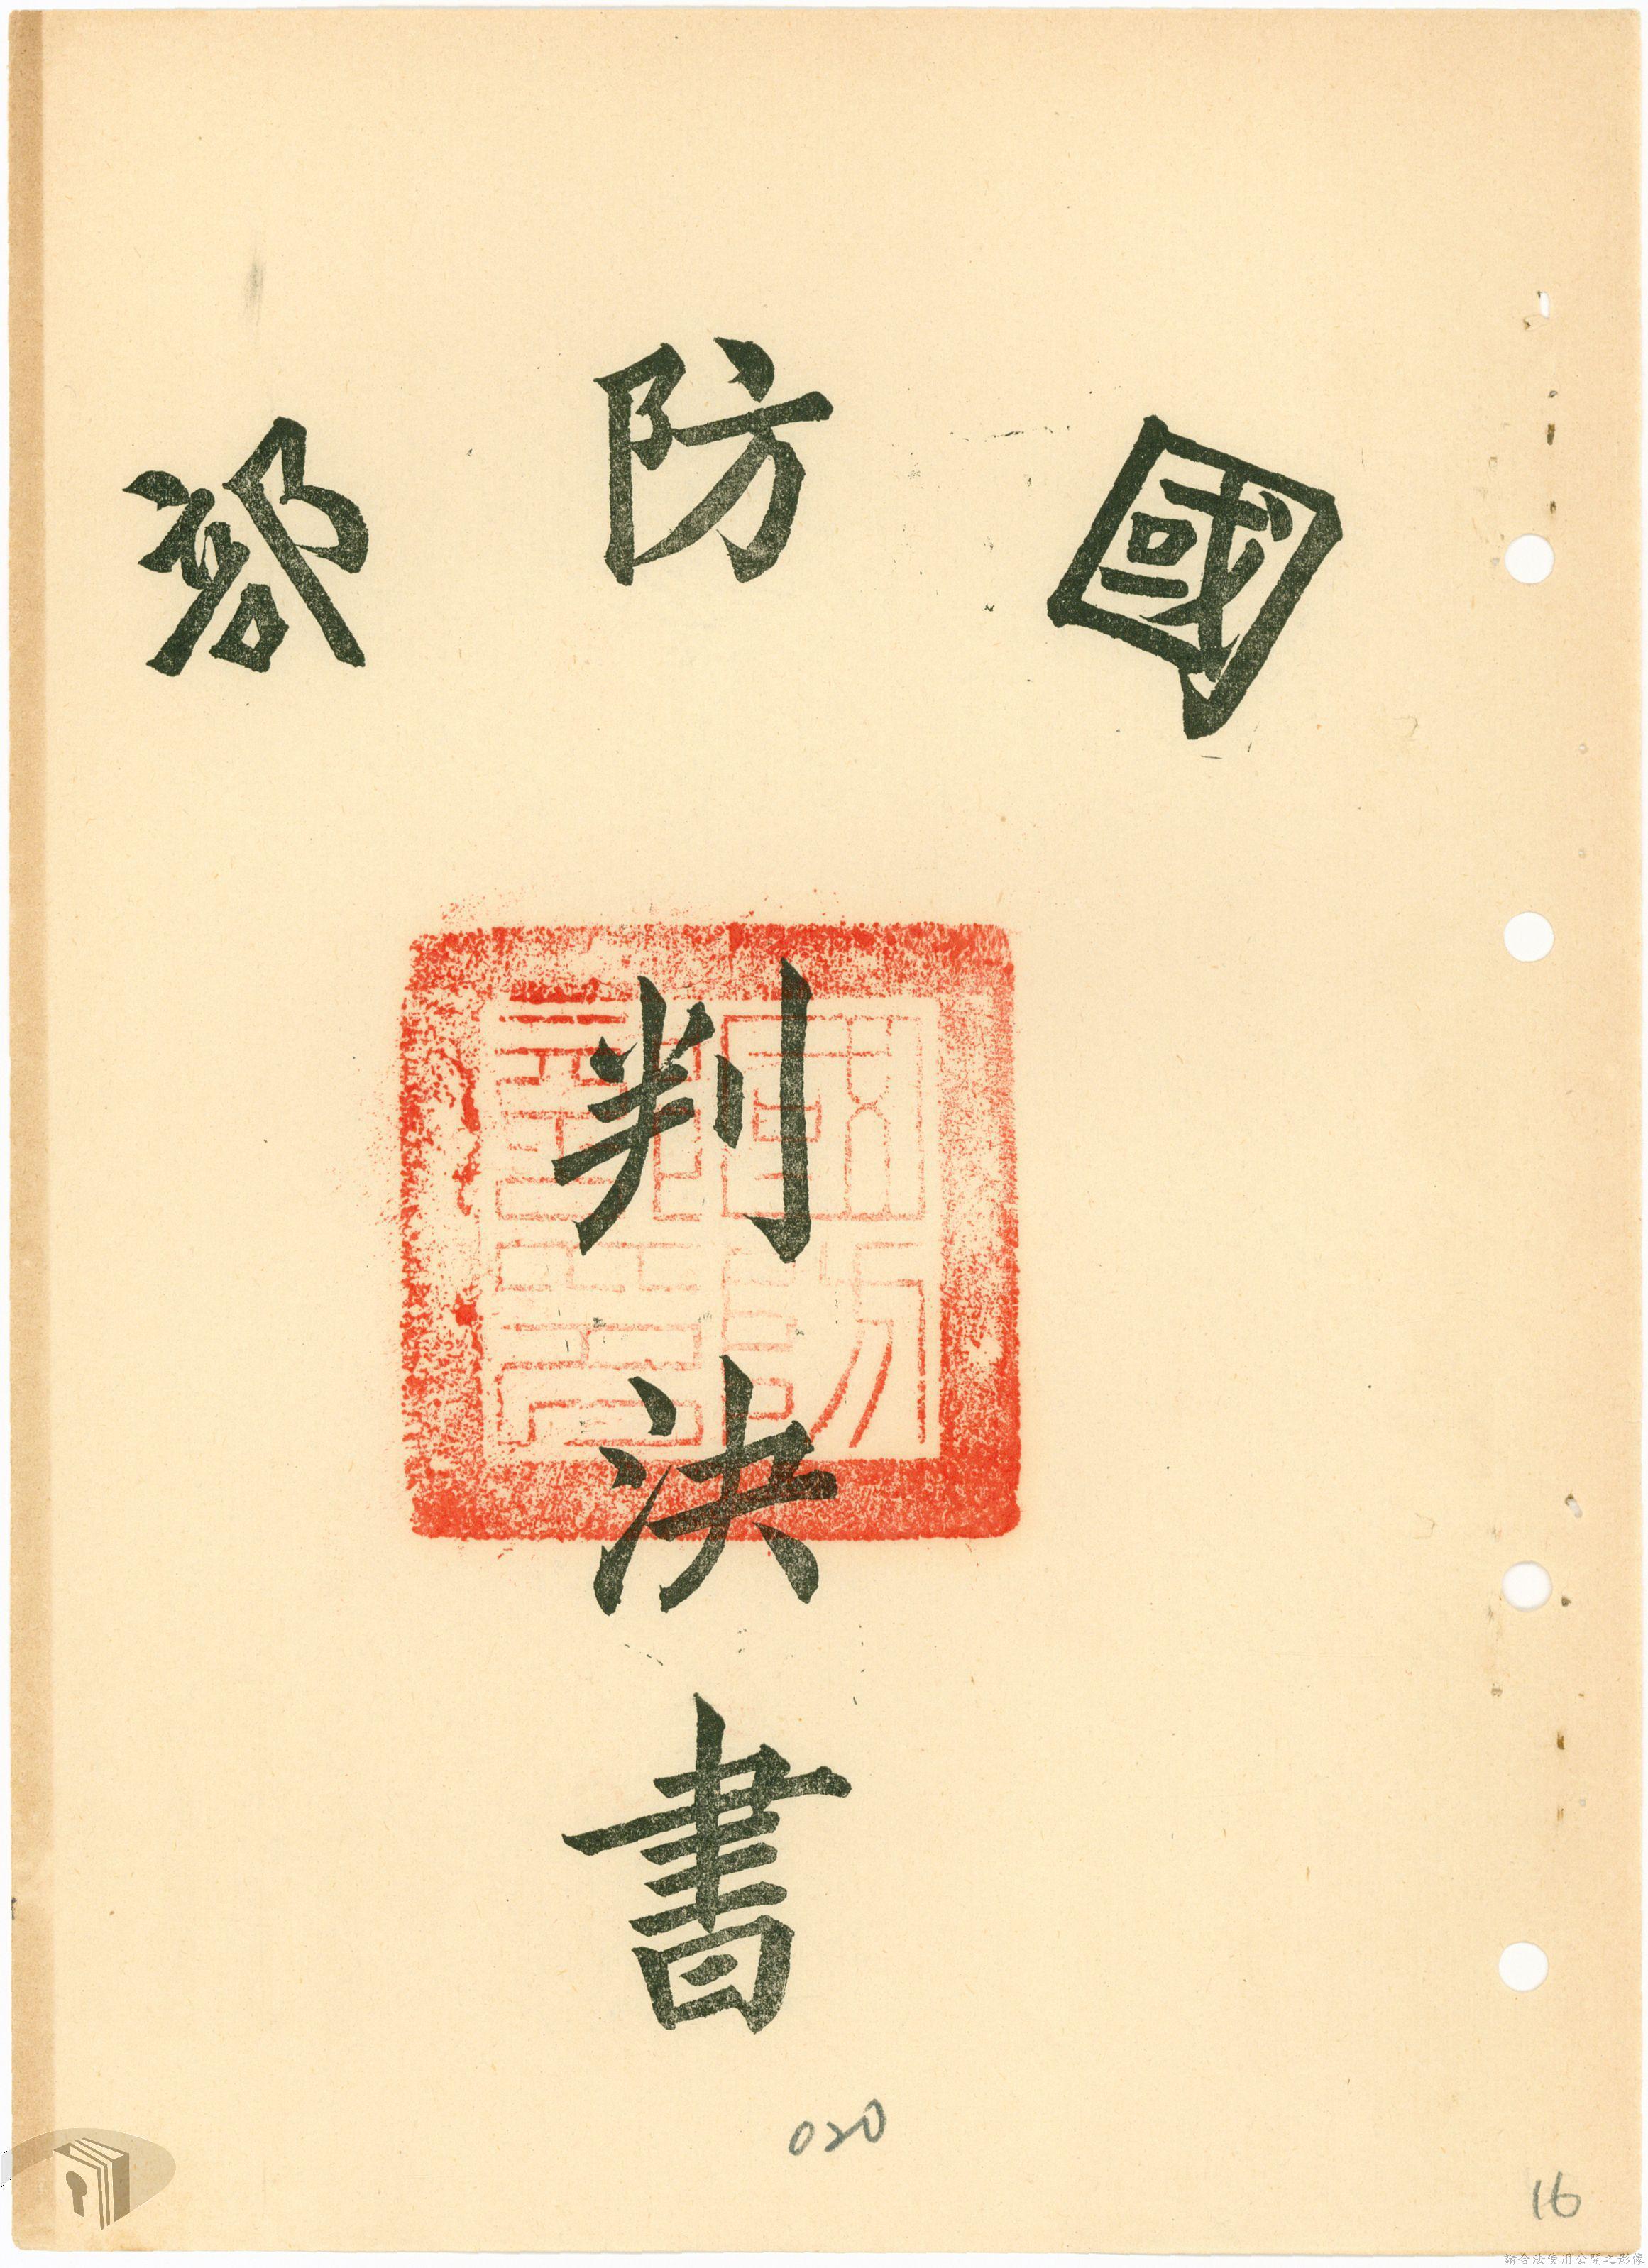 國防部
判決書
020
16
請合法使用公開之影像